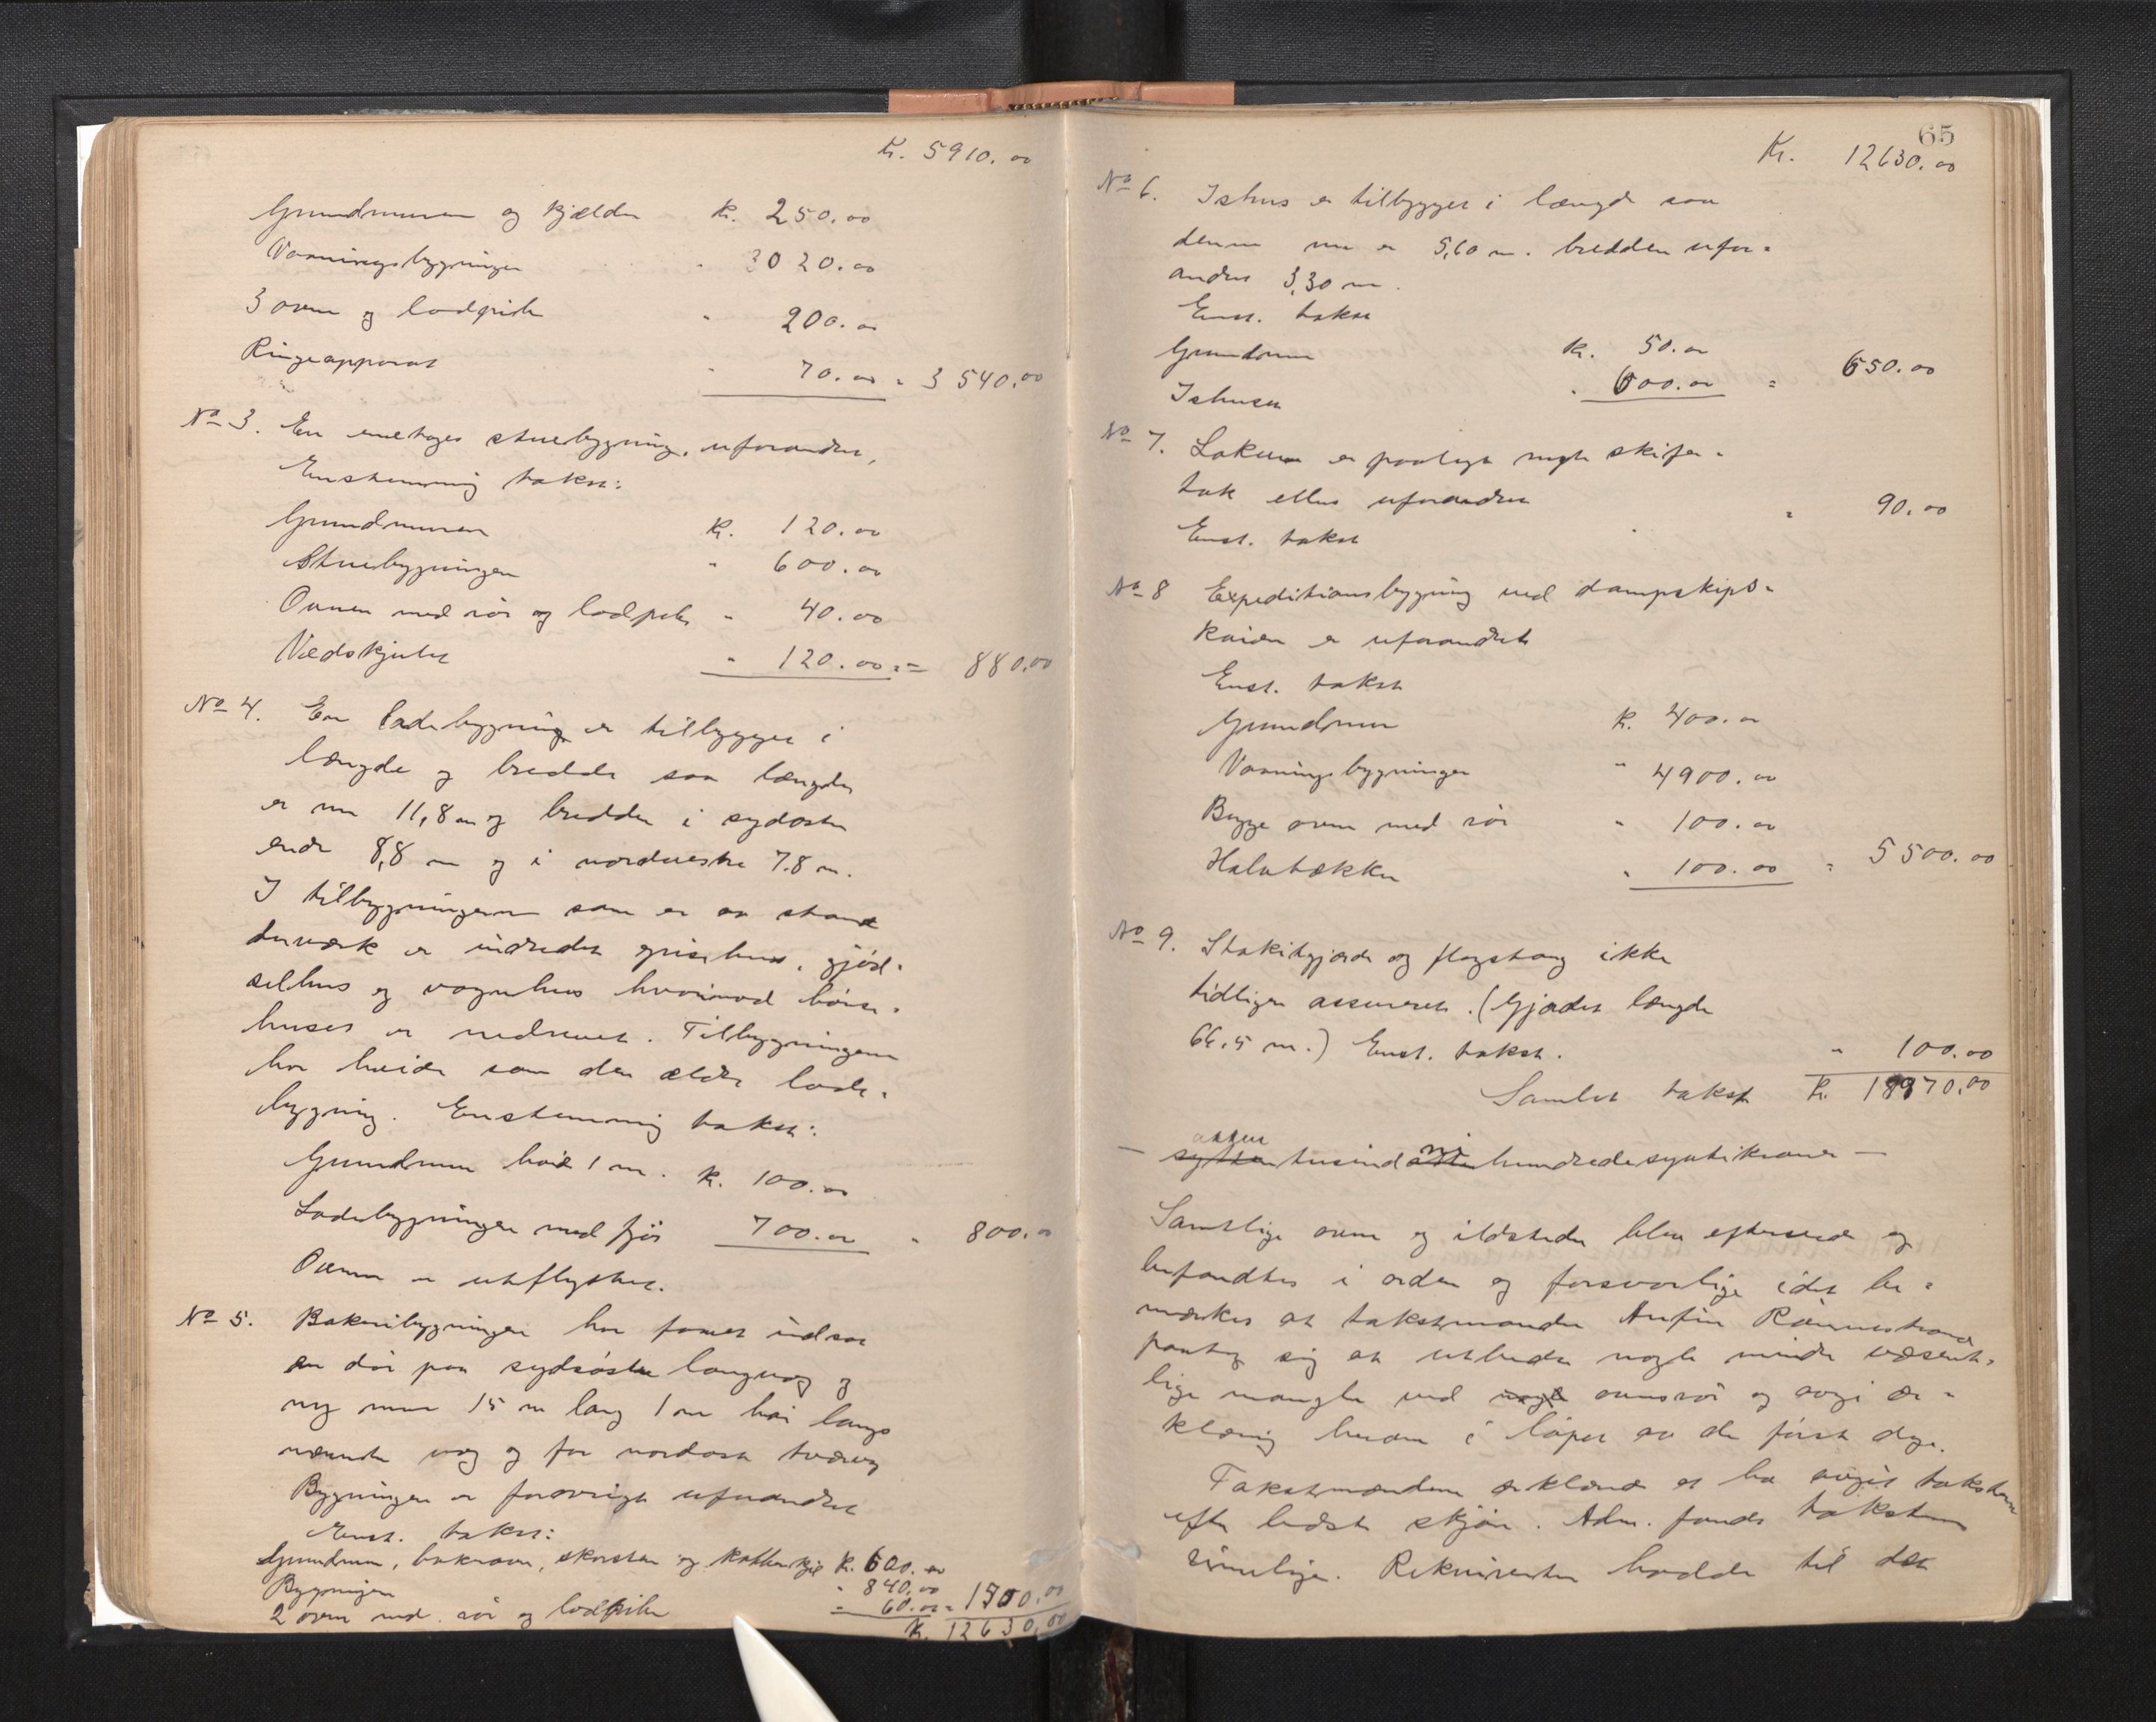 Kr. 5910.00
Grundmuren og kjælder Kr. 250.00
Vaaningsbygningen " 3020.00
3 ovne og lodpiber " 200.00
Ringeapparat " 70.00 = 3540.00
No 3. En enetages stuebygning, uforandret,
Enstemmig takst:
Grundmuren Kr. 120.00
Stuebygningen " 600.00
Ovnen med rör og lodpibe " 40.00
Vedskjulet " 120.00 = 880.00
No 4. En ladebygning er tilbygget i
længde og bredde saa længden
er nu 11,8 m og bredden i sydöstre
ende 8,8 m og i nordvestre 7.8 m.
I tilbygningen som er av stand
derverk er indredet grisehus, gjöd-
selhus og vognhus hvorimod
huset er nedrevet. Tilbygningen
har höide som den ældre lade-
bygning. Enstemmig takst:
Grundmur höide 1 m. Kr. 100.00
Ladebygningen med fjös 700.00 " 800.00
Ovnen er utflyttet.
No 5. Bakeribygningen har faaet indsat
en dör paa sydöstre langvæg og
ny mur 15 m lang 1 m höi langs
nævnte væg og for nordöstre tvervæg
Bygningen er forövrigt uforandret
Enst. takst:
Grundmur, bakerovn, skorsten og Kr. 600.00
Bygningen " 840.00
2 ovne med rör og lodpiber " 60.00 = 1500.00
Kr. 12630.00
65
Kr. 12630.00
No 6. Ishus er tilbygget i længde saa
denne nu er 5,60 m. bredden ufor-
andret 3,30 m.
Enst. takst
Grundmur Kr. 50.00
Ishuset " 600.00 = 650.00
No 7. Lokum er paalagt nyt skifer-
tak ellers uforandret
Enst. takst " 90.00
No 8 Expeditionsbygning ved dampskibs-
kaien er uforandret
Enst. takst
Grundmur Kr. 400.00
Vaaningsbygningen " 4900.00
Begge ovne med rör " 100.00
Halvtækket " 100.00 = 5500.00
No 9. Stakitgjærde og flagstang ikke
tidligere assureret. (Gjærdets længde
66.5 m.) Enst. takst. " 100.00
Samlet takst Kr. 18970.00
atten
— sytten tusind otte ni hundrede sytti kroner —
Samtlige ovne og ildsteder blev efterseet og
befandtes i orden og forsvarlige idet be-
merkes at takstmanden Anfin Rönnestrand
paatog sig at utbedre nogle mindre væsent-
lige mangler ved nogle ovnsrör og avgi er-
klæring herom i löpet av de först dage.
Takstmændene erklærte at ha avgit taksten
efter bedste skjön. Adm. fandt taksten
rimelige. Rekvirenten hadde til det